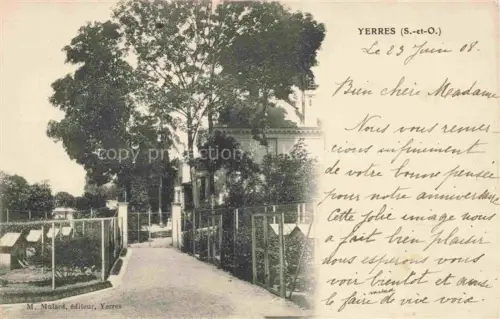 YERRES (S.-et-O.)
Le 23 Juin 08.
Bien chère Madame
Nous vous remer-
cions infiniment
de votre bonne pensée
pour notre anniversaire
Cette jolie image nous
a fait bien plaisir
nous espérons vous
voir bientôt et
le faire de vive voix.
copyright
M. Mulard, éditeur, Yerres